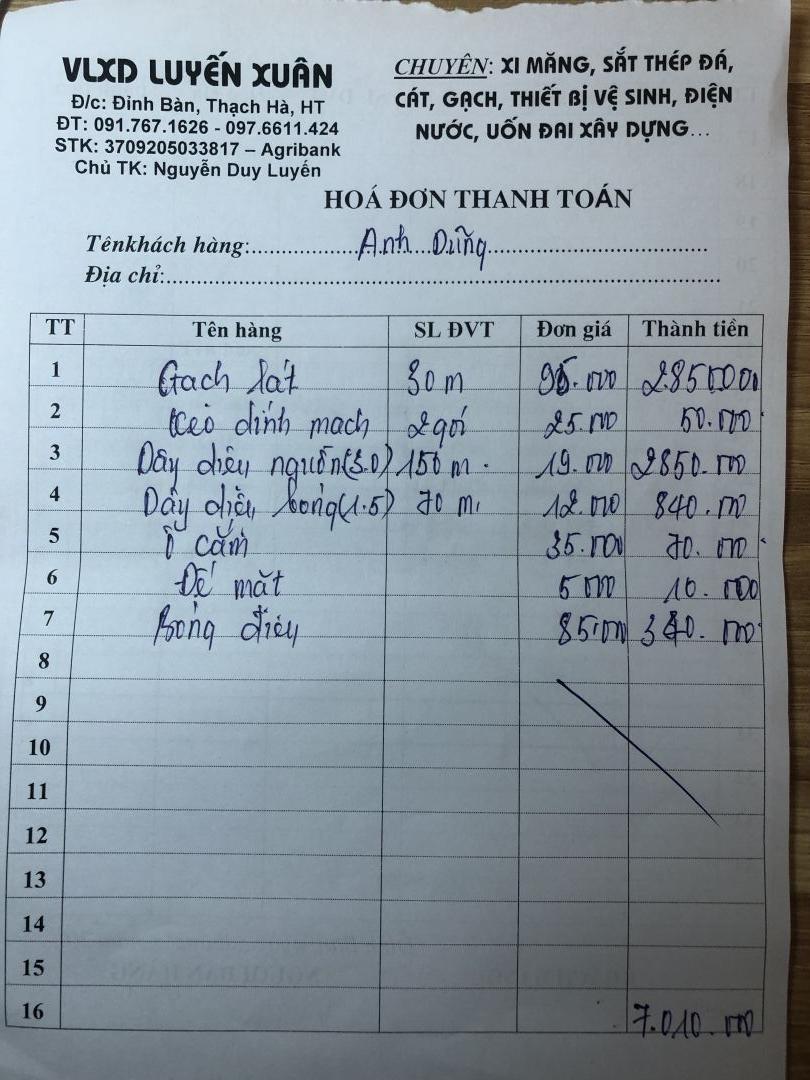 VLXD LUYẾN XUÂN
Đ/c: Đỉnh Bàn, Thạch Hà, HT
ĐT: 091.767.1626 - 097.6611.424
STK: 3709205033817 – Agribank
Chủ TK: Nguyễn Duy Luyến
CHUYÊN: XI MĂNG, SẮT THÉP ĐÁ,
CÁT, GẠCH, THIẾT BỊ VỆ SINH, ĐIỆN
NƯỚC, UỐN ĐAI XÂY DỰNG...
HOÁ ĐƠN THANH TOÁN
Tênkhách hàng: Anh Dũng
Địa chỉ:
TT Tên hàng SL ĐVT Đơn giá Thành tiền
1 Gạch lát 30 m 95.000 2.850.000
2 Keo dính mạch 2 gói 25.000 50.000
3 Dây điện nguồn (3.0) 150 m 19.000 2850.000
4 Dây điện bóng (1.5) 70 m 12.000 840.000
5 Ổ cắm 35.000 70.000
6 Đế mặt 5000 10.000
7 Bóng điện 85.000 340.000
8
9
10
11
12
13
14
15
16 7.010.000